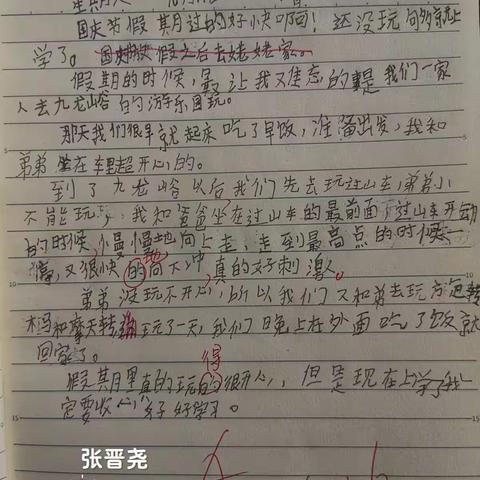 国庆节假期过的好快啊！还没玩够就上
学了。国庆放假之后去姥姥家。
假期的时候，最让我难忘的是我们一家
人去九龙峪的游乐园玩。
那天我们很早就起来吃了早饭，准备出发，我和
弟弟坐在车里超开心的。
到了九龙峪以后我们先去玩过山车，弟弟小
不能玩，我和爸爸坐在过山车的最前面，过山车开动
的时候，慢慢地向上走，走到最高点的时候一
停，又很快的地向下冲，真的好刺激。
弟弟没玩不开心，所以我们又和弟去玩旋转
木马和摩天轮，玩了一天，我们晚上在外面吃了饭就
回家了。
得
假期里真的玩的很开心，但是现在上学了我一
定要收心，好好学习。
张晋尧